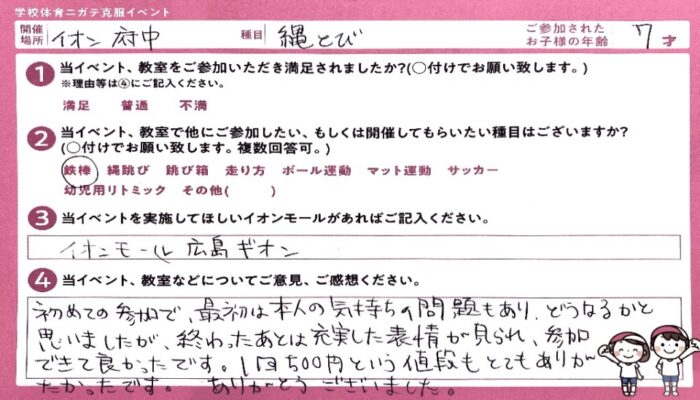 学校体育ニガテ克服イベント
開催場所 イオン府中 種目 縄とび ご参加されたお子様の年齢 7才
1 当イベント、教室をご参加いただき満足されましたか?(○付けでお願い致します。)
※理由等は④にご記入ください。
満足 普通 不満
2 当イベント、教室で他にご参加したい、もしくは開催してもらいたい種目はございますか?
(○付けでお願い致します。複数回答可。)
鉄棒 縄跳び 跳び箱 走り方 ボール運動 マット運動 サッカー
幼児用リトミック その他( )
3 当イベントを実施してほしいイオンモールがあればご記入ください。
イオンモール 広島ギオン
4 当イベント、教室などについてご意見、ご感想ください。
初めての参加で、最初は本人の気持ちの問題もあり、どうなるかと
思いましたが、終わったあとは充実した表情が見られ、参加
できて良かったです。1回500円という値段もとてもありが
たかったです。 ありがとうございました。